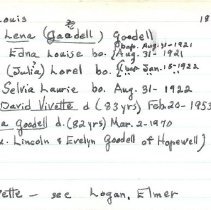 Louis 18
Lena (Goodell) Goodell
bap. Aug. 31-1921
Edna Louise bo. Aug. 31-1921
(Julia) Lorel bo. bap Jan. 15-1922
Selvia Laurie bo. Aug. 31-1922
David Vivette d (83 yrs) Feb. 20-1953
a Goodell d. (82 yrs) Mar. 2-1970
Lincoln & Evelyn Goodell of Hopewell)
ette - see Logan, Elmer